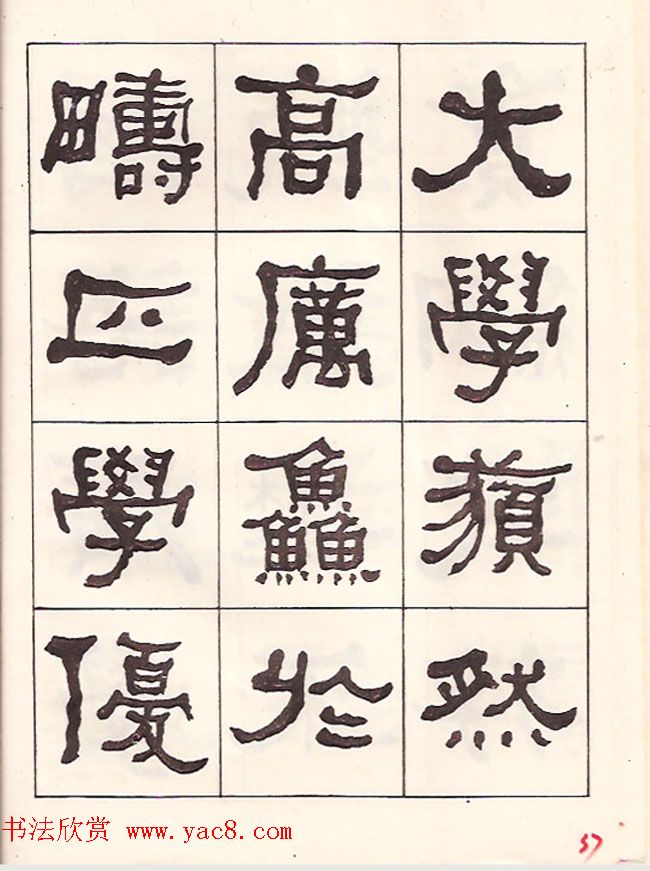 大學䫉然
高厲鱻於
疇匹學優
书法欣赏 www.yac8.com
57